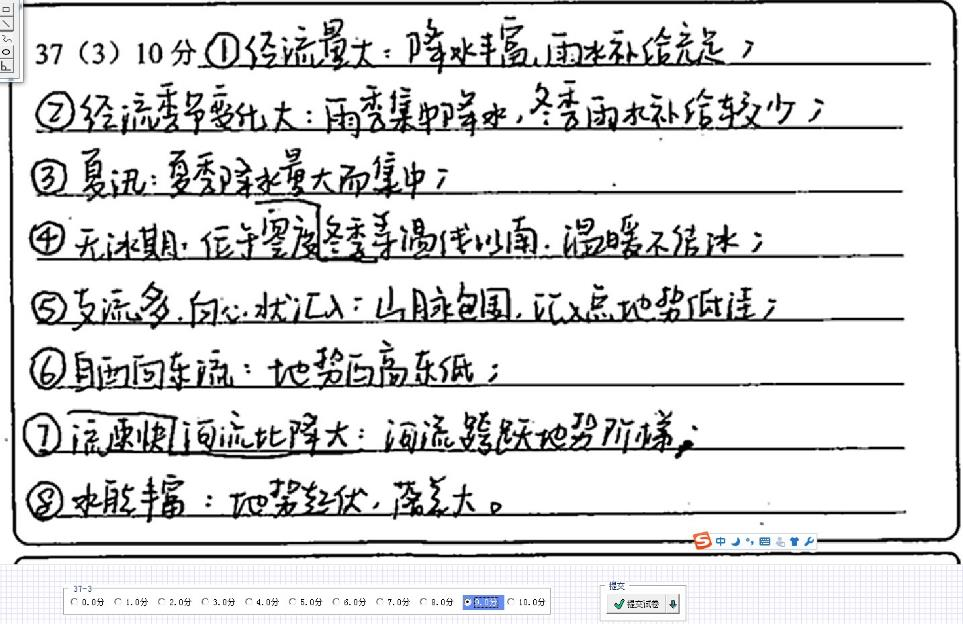 37（3）10分①经流量大：降水丰富,雨水补给充足；
②经流季节变化大：雨季集中降水，冬季雨水补给较少；
③夏汛：夏季降水量大而集中；
④无冰期：位于零度冬季等温线以南.温暖不结冰；
⑤支流多.向心状汇入：山脉包围.汇入点地势低洼；
⑥自西向东流：地势西高东低；
⑦流速快河流比降大：河流跨跃地势阶梯；
⑧水能丰富：地势起伏，落差大。
中
37-3
0.0分 1.0分 2.0分 3.0分 4.0分 5.0分 6.0分 7.0分 8.0分 9.0分 10.0分
提交
提交试卷